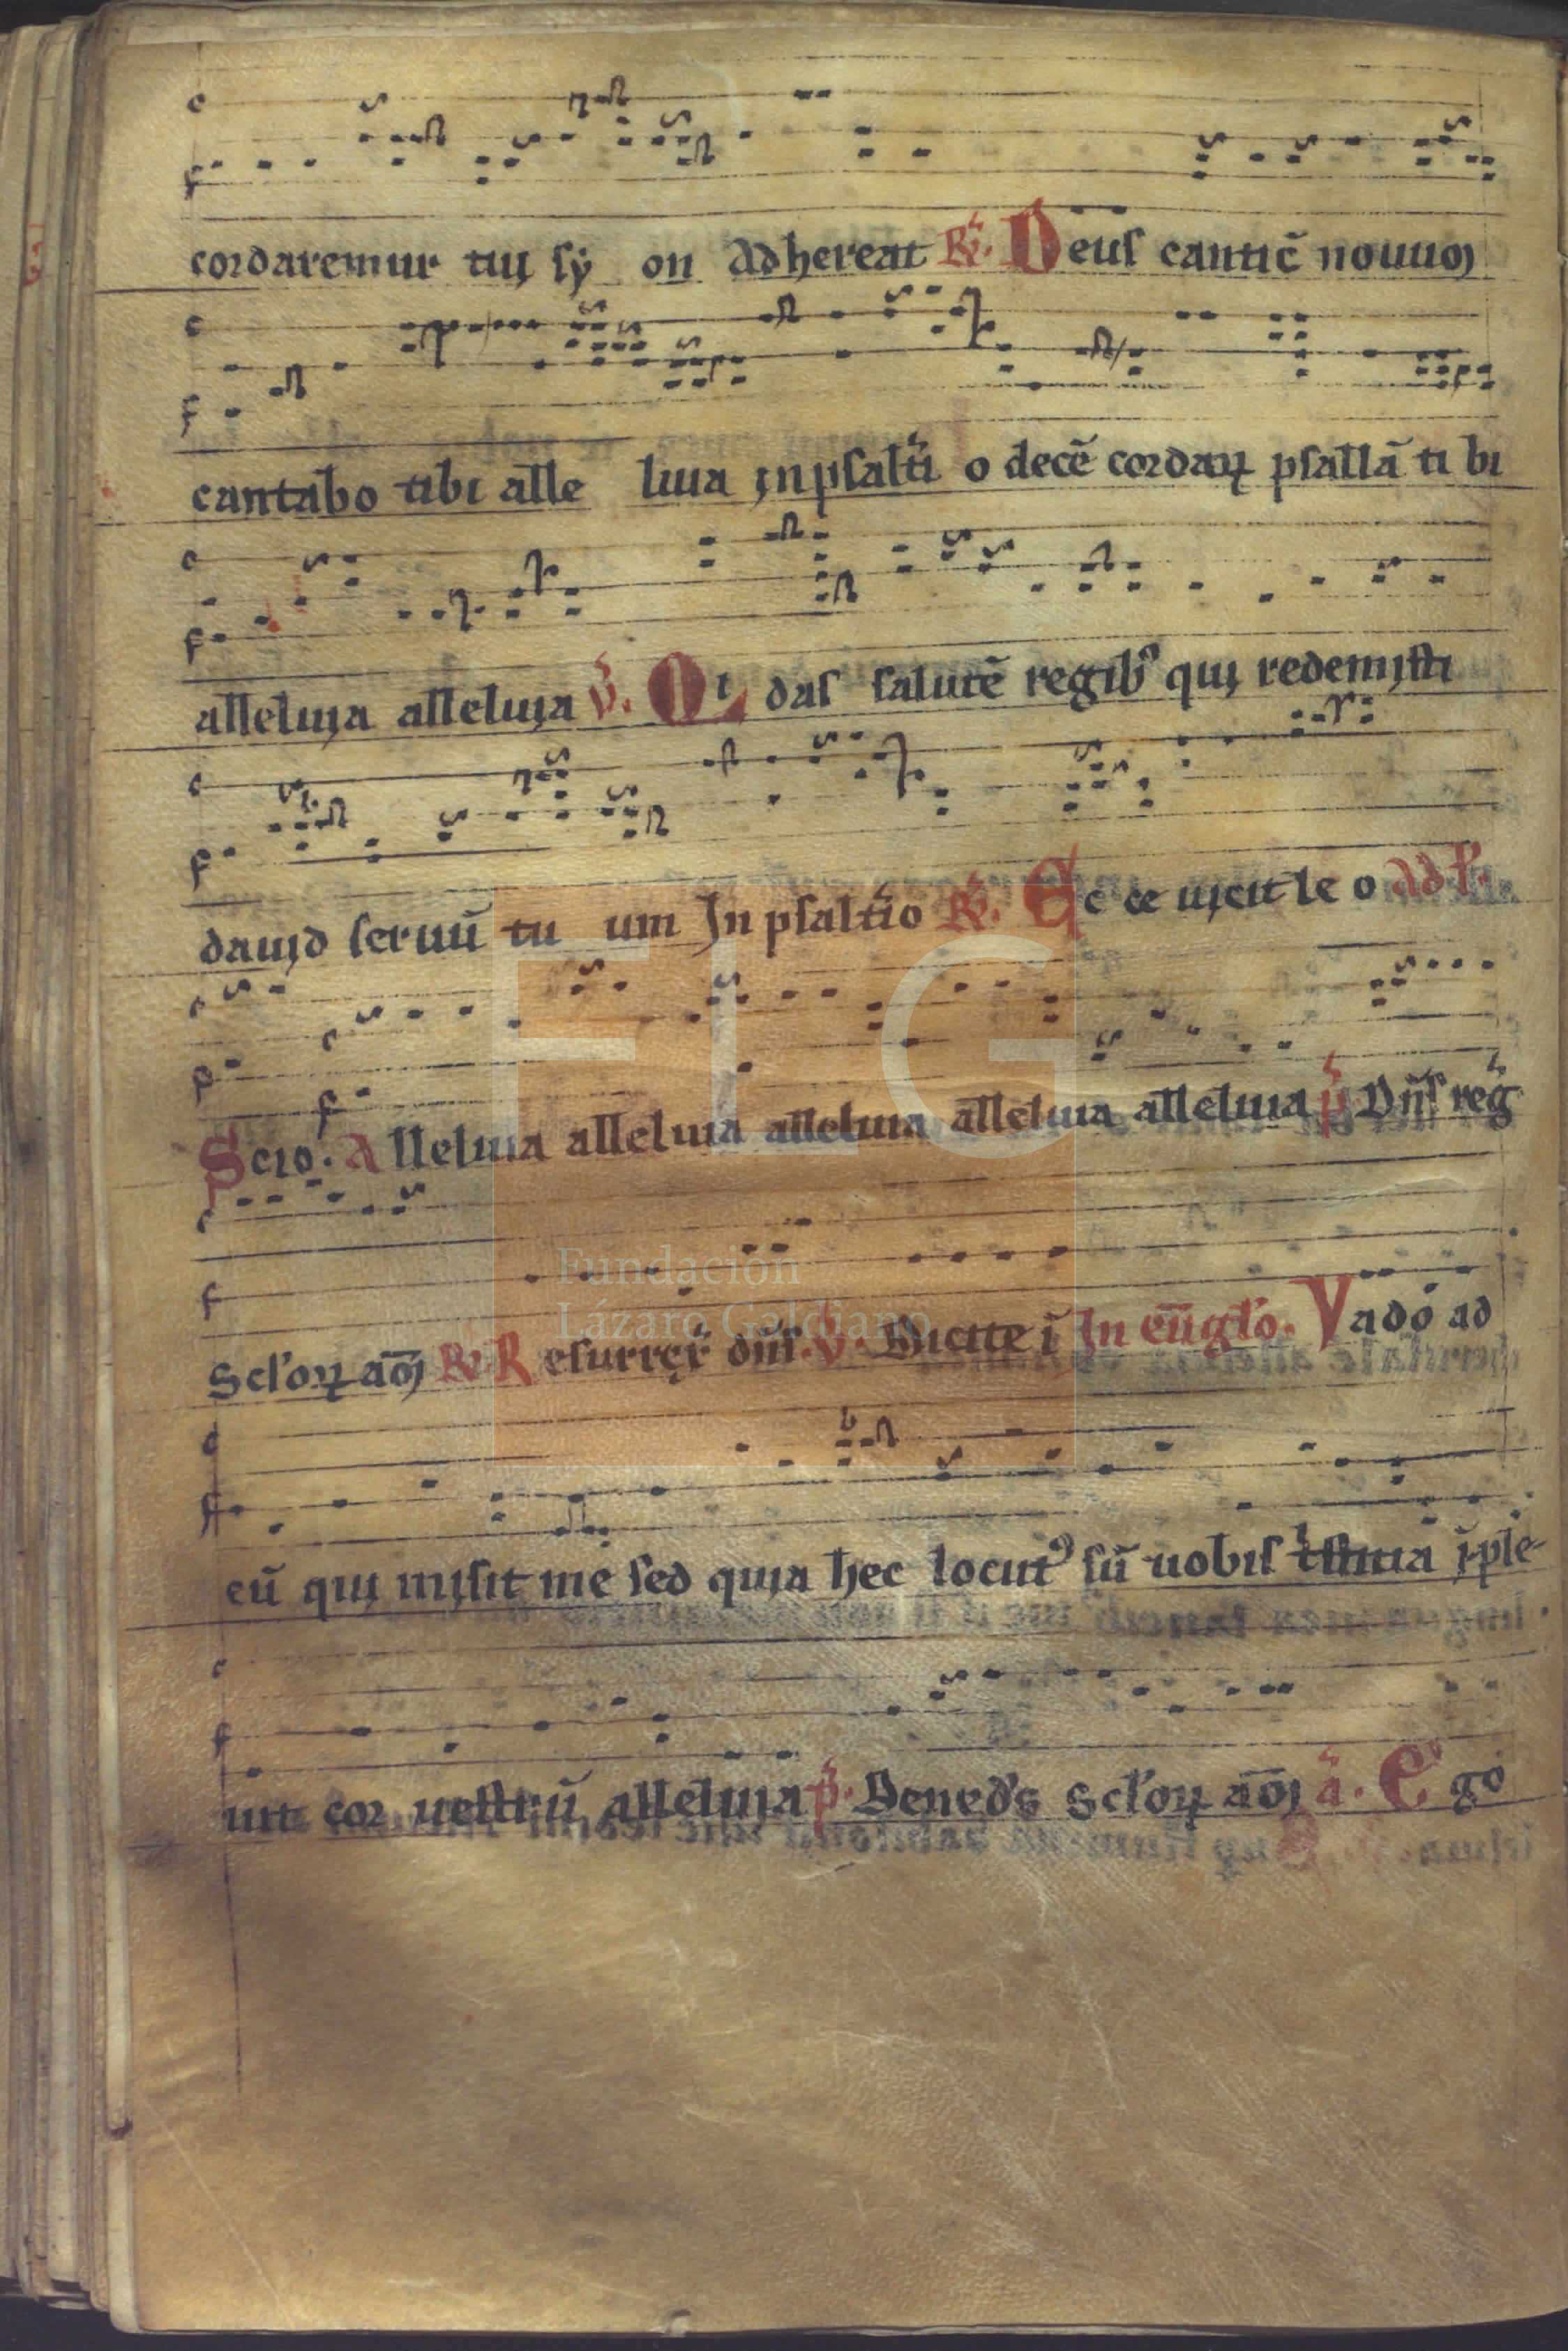 cordaremur tui sy on Adhereat R̃. Deus cantic̃ nouuɜ
cantabo tibi alle luia in psalt̃i o decẽ cordaꝝ psallã ti bi
alleluia alleluia ṽ. Qi das salutẽ regibꝰ qui redemisti
dauid seruũ tu um In psalt̃io R̃. Ec ce uicit le o Ad P̃.
Scio. Alleluia alleluia alleluia alleluia alleluia p̃ Dñs reg̃
Scłoꝝ aōɜ R̃ Resurrex̃ dñs. ṽ. Dicite ĩ In eũgło. Vado ad
eũ qui misit me sed quia hec locutꝰ sũ uobis tͥstitia ĩple-
uit cor uestrũ alleluia p̃. Bened̃s Scłoꝝ aōɜ ã. Ego
FLG
Fundación
Lázaro Galdiano